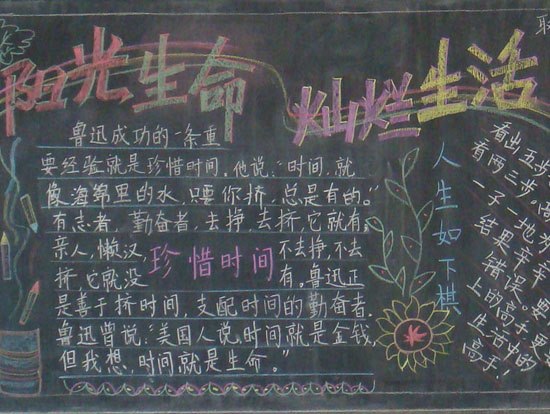 阳光生命 灿烂生活
鲁迅成功的一条重
要经验就是珍惜时间，他说：“时间，就
像海绵里的水，只要你挤，总是有的。”
有志者，勤奋者，去挣，去挤，它就有。
亲人，懒汉，不去挣，不去
挤，它就没有。鲁迅正
珍惜时间
是善于挤时间，支配时间的勤奋者.
鲁迅曾说：“美国人说，时间就是金钱，
但我想，时间就是生命。”
人生如下棋
看出五步
有两三步。
一子一地为
结果
错误。要
上的高手更
生活中的
高手！